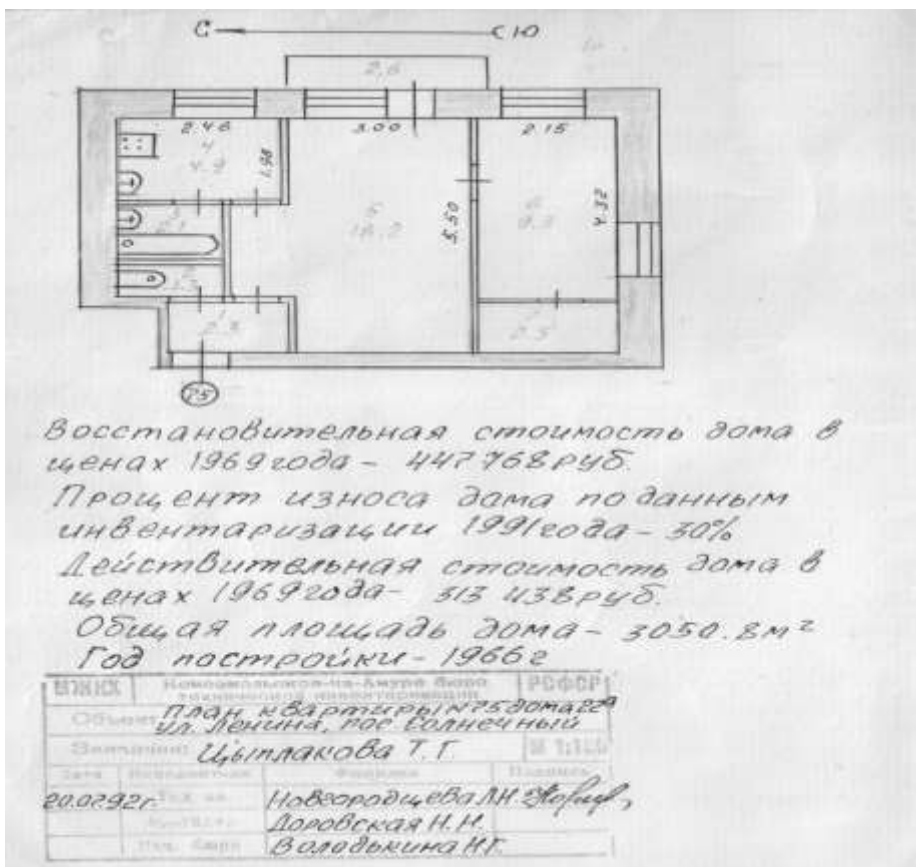 С
СЮ
2.46
3.00
2.15
1.98
5.50
4.32
75
Восстановительная стоимость дома в
ценах 1969 года - 447 768 руб.
Процент износа дома по данным
инвентаризации 1991 года - 30%
Действительная стоимость дома в
ценах 1969 года - 313 438 руб.
Общая площадь дома - 3050.8 м²
Год постройки - 1966 г
МЖКХ Комсомольское-на-Амуре бюро РСФСР
технической инвентаризации
Объект: план квартиры №75 дома
ул. Ленина, пос Солнечный
Цыплакова Т. Г.
М 1:100
Дата Фамилия Подпись
20.02.92г. Новгородцева Л.Н.
Доровская Н.Н.
Володькина Н.Г.